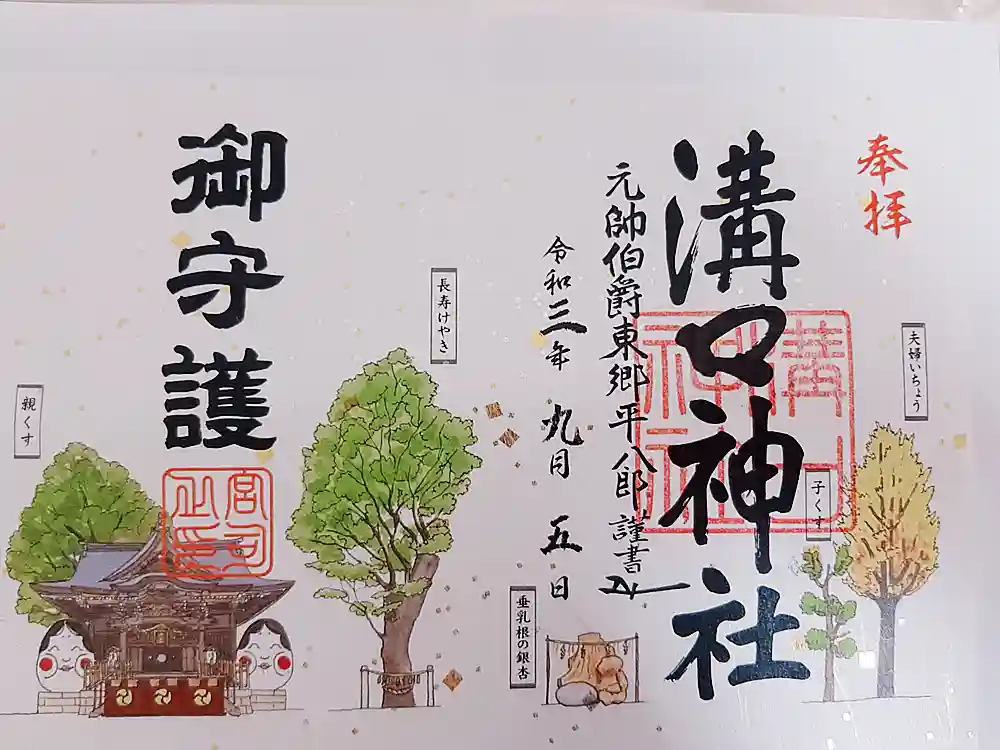 奉拝
溝口神社
溝口神社
元帥伯爵東郷平八郎 謹書
令和三年 九月 五日
御守護
宮司之印
夫婦いちょう
子くす
垂乳根の銀杏
長寿けやき
親くす